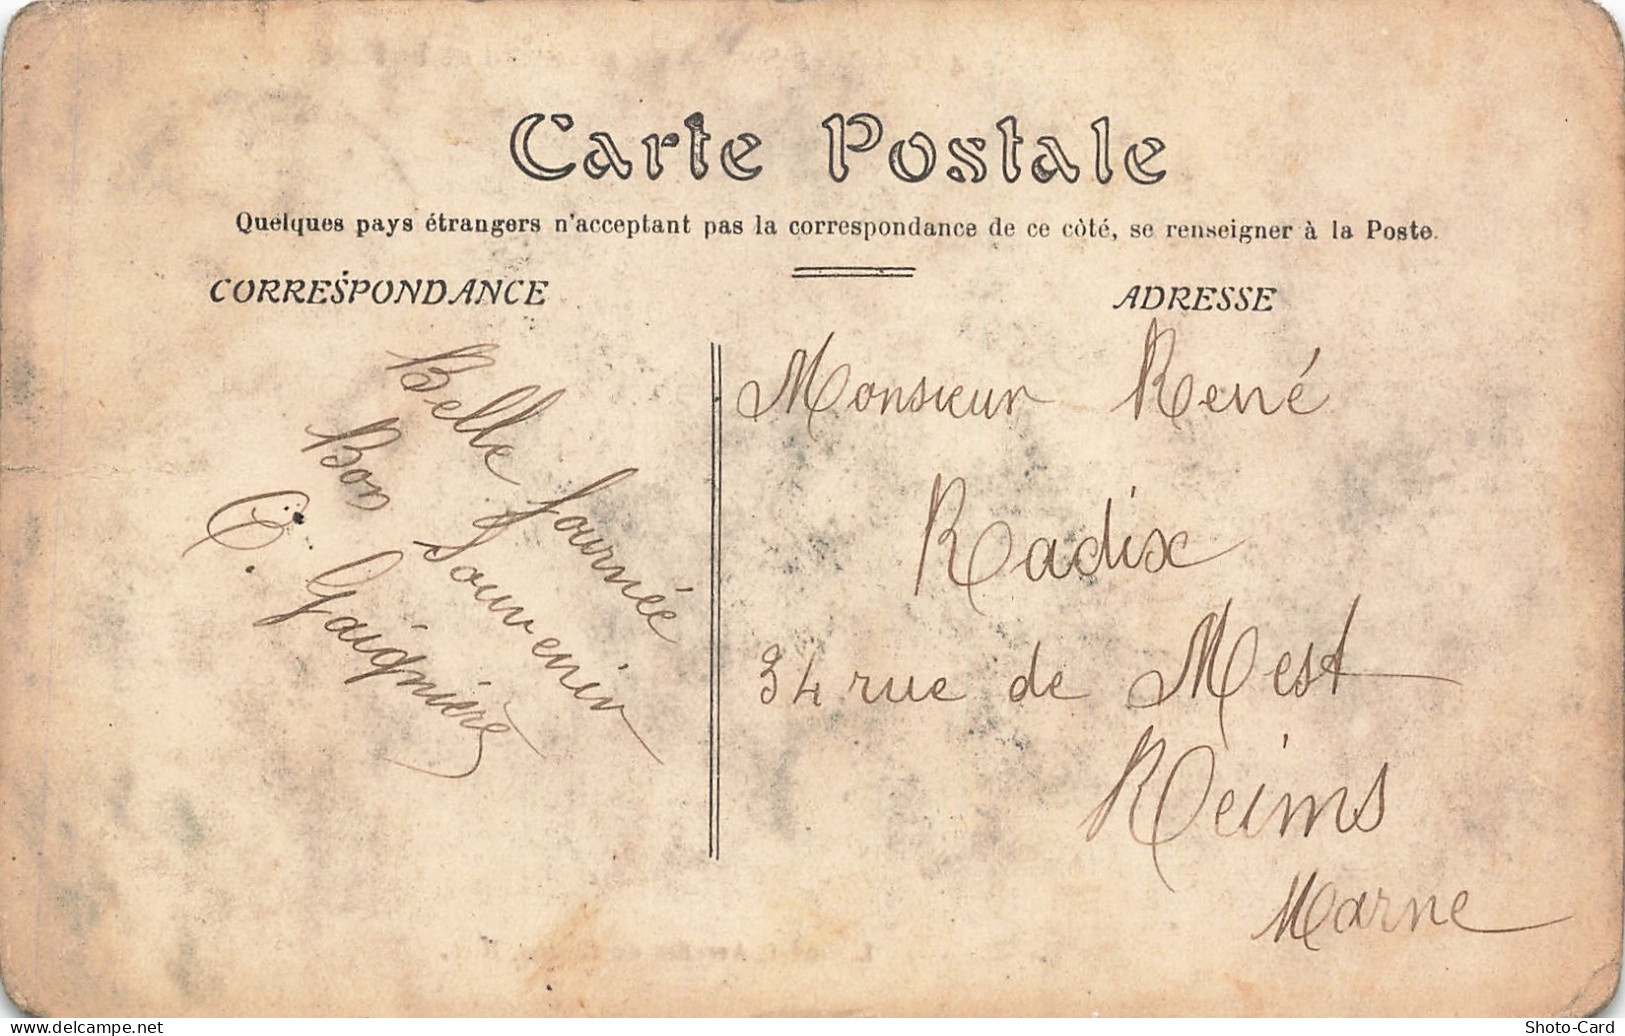 Carte Postale
Quelques pays étrangers n'acceptant pas la correspondance de ce côté, se renseigner à la Poste.
CORRESPONDANCE
Belle Journée
Bon Souvenir
C. Gaignière
ADRESSE
Monsieur René
Radix
34 rue de Mest
Reims
Marne
Shoto-Card
www.delcampe.net